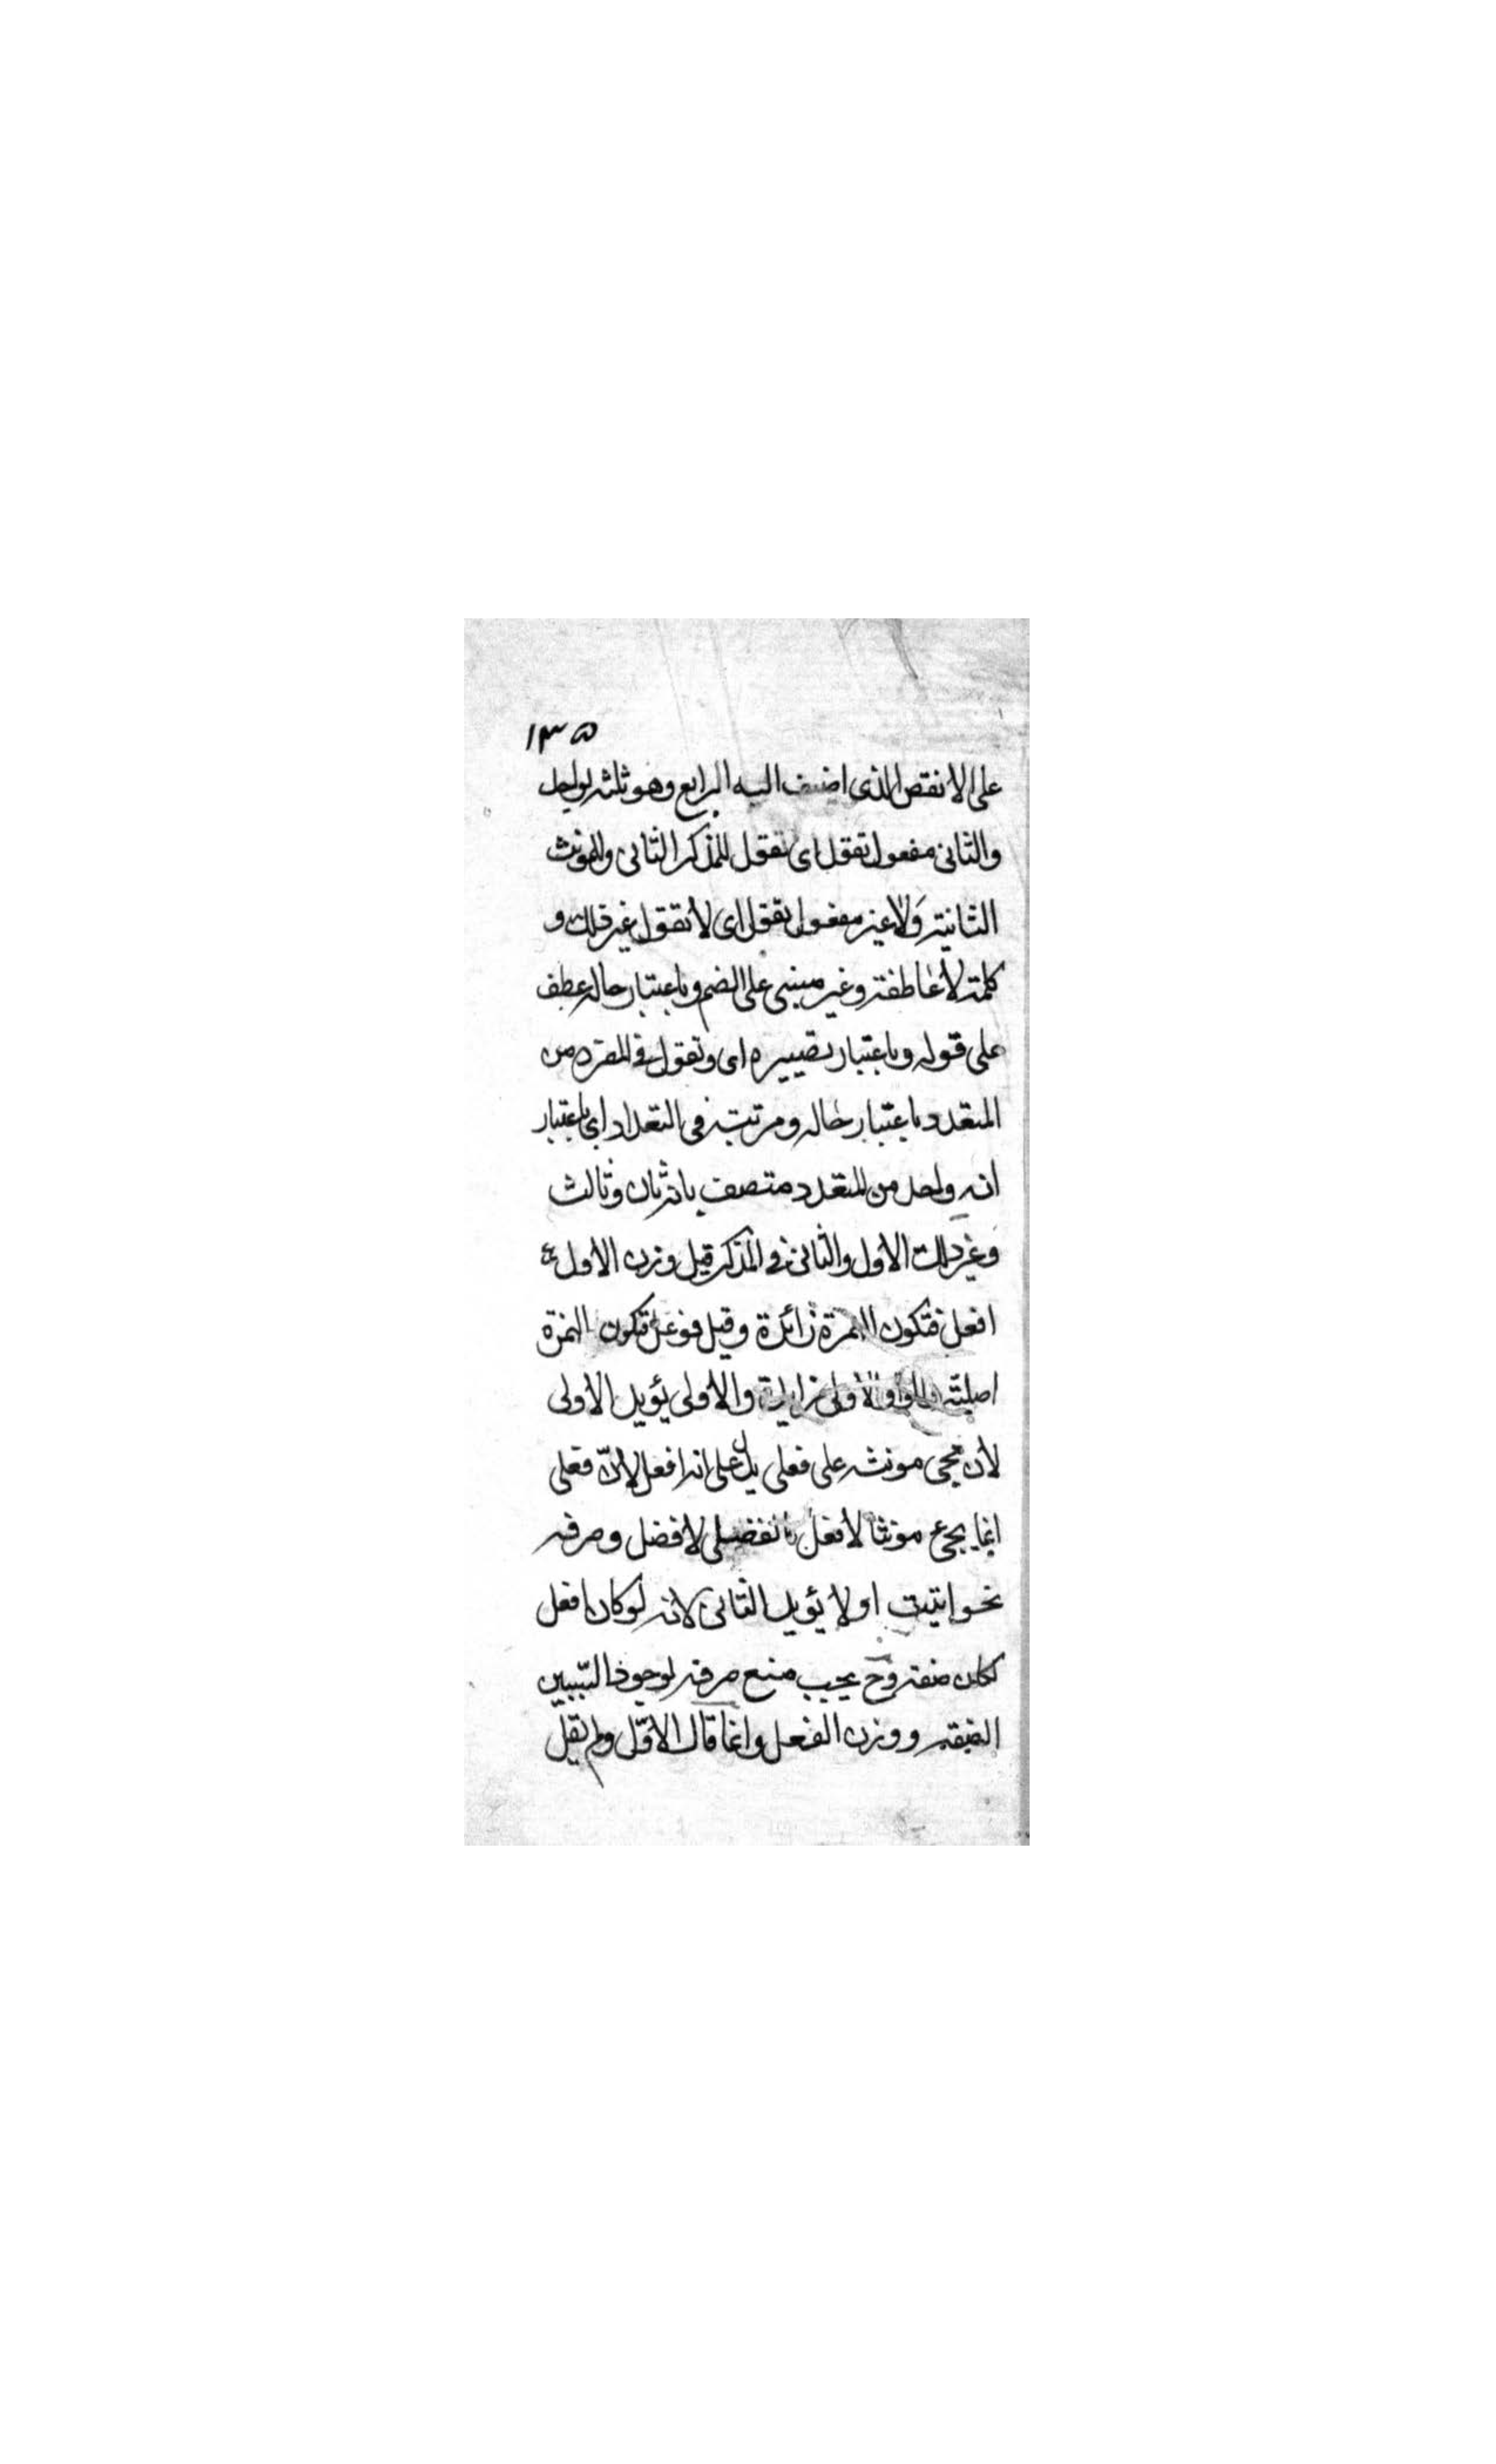 ١٣٥
على الانقص الذى اضيف اليه الرابع وهو ثلثه لواحد
والثانى مفعول تقول اى تقول للمذكر الثانى وللمونث
الثانية ولا غير مفعول تقول اى لا تقول غير ذلك و
كلمة لا عاطفة وغير مبنى على الضم وباعتبار حاله عطف
على قوله وباعتبار تصييره اى وتقول فى المفرد من
المتعدد باعتبار حاله ومرتبته فى التعداد اى باعتبار
انه واحد من المتعدد متصف بانه ثان وثالث
وغير ذلك الاول والثانى فى المذكر قيل وزن الاول
افعل فتكون الهمزة زائدة وقيل فوعل فتكون الهمزة
اصلية والواو الاولى زايدة والاولى يؤيد الاولى
لان مجى مونثه على فعلى يدل على انه افعل لانّ فعلى
انما يجئ مونثا لافعل كفضلى لافضل وصرفه
نحو اتيت اولا يؤيد الثانى لانه لو كان افعل
لكان صفة وح يجب منع صرفه لوجود السّببين
الصفة ووزن الفعل وانما قال الاوّل ولم يقل